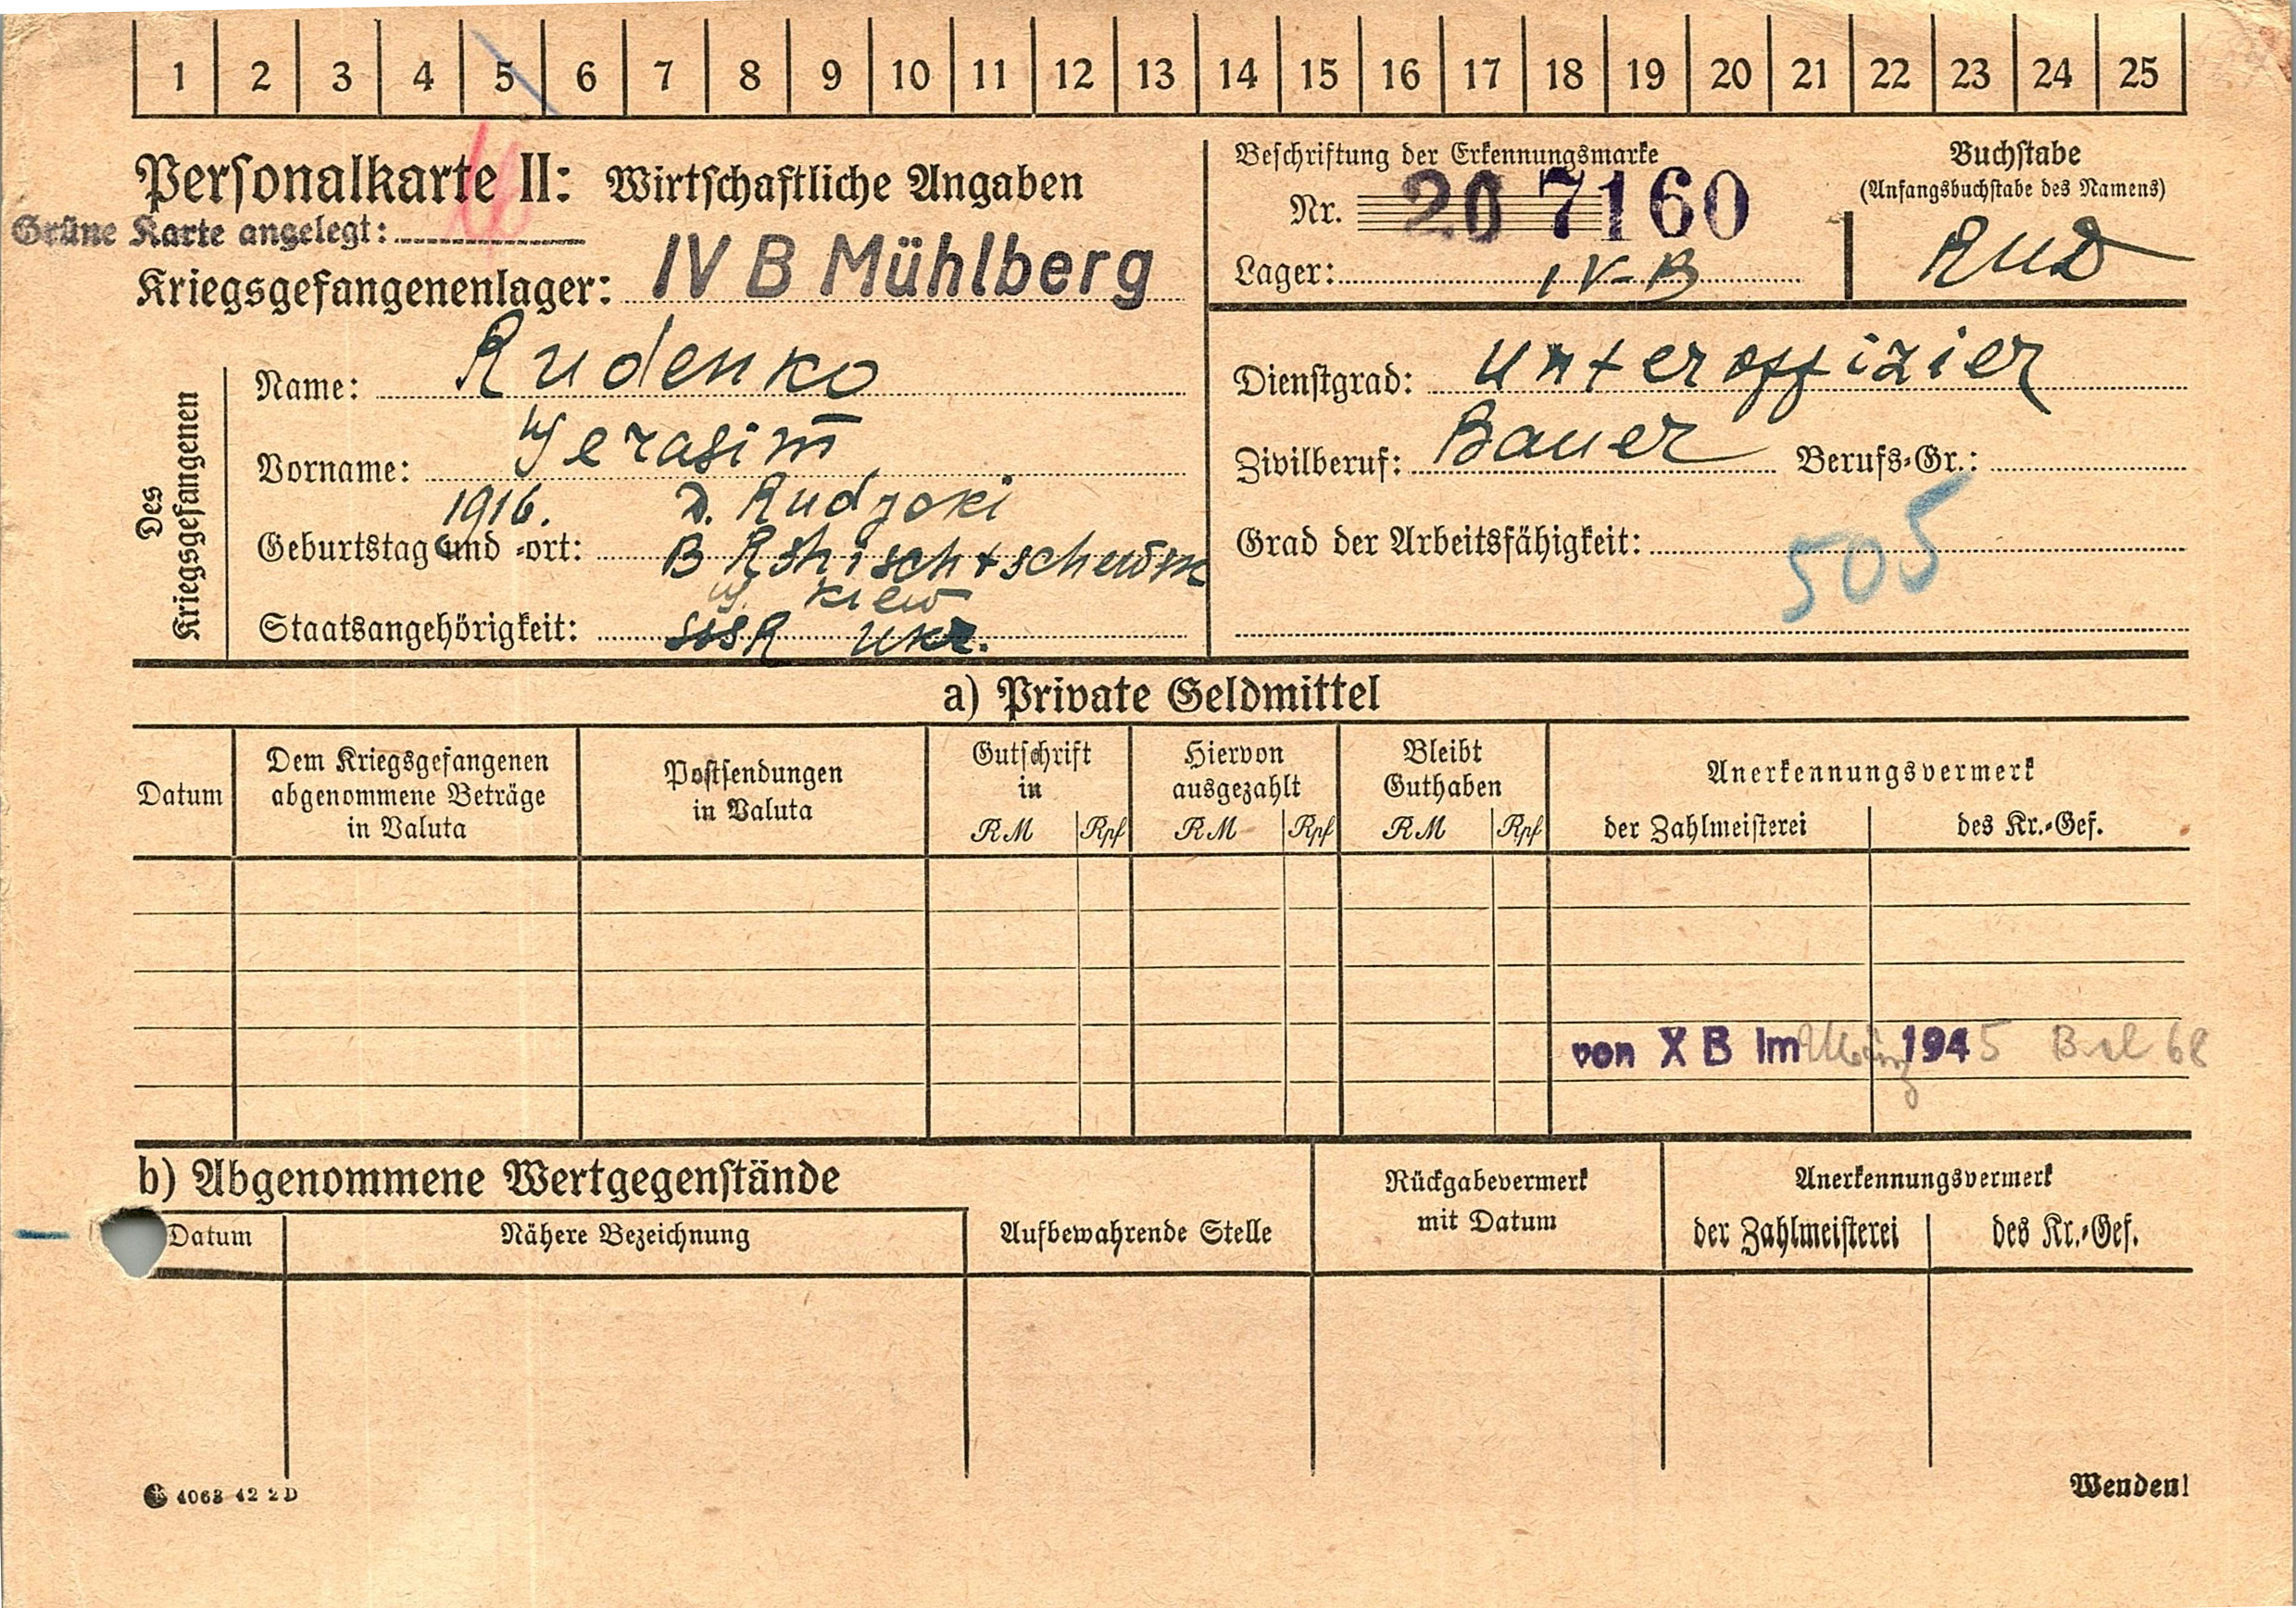 1 2 3 4 5 6 7 8 9 10 11 12 13 14 15 16 17 18 19 20 21 22 23 24 25
Personalkarte II: Wirtschaftliche Angaben
Grüne Karte angelegt:
Kriegsgefangenenlager: IV B Mühlberg
Beschriftung der Erkennungsmarke
Nr. 207160
Lager: IV-B
Buchstabe
(Anfangsbuchstabe des Namens)
RUD
Des Kriegsgefangenen
Name: Rudenko
Vorname: Gerasim
1916. D. Rudzoki
Geburtstag und -ort: B Rshischtschewm
Kiew
Staatsangehörigkeit: SSSR Ukr.
Dienstgrad: Unteroffizier
Zivilberuf: Bauer Berufs-Gr.:
Grad der Arbeitsfähigkeit:
505
a) Private Geldmittel
Datum
Dem Kriegsgefangenen
abgenommene Beträge
in Valuta
Postsendungen
in Valuta
Gutschrift
in
RM Rpf
Hiervon
ausgezahlt
RM Rpf
Bleibt
Guthaben
RM Rpf
Anerkennungsvermerk
der Zahlmeisterei des Kr.-Gef.
von X B Im März 1945
b) Abgenommene Wertgegenstände
Datum
Nähere Bezeichnung
Aufbewahrende Stelle
Rückgabevermerk
mit Datum
Anerkennungsvermerk
der Zahlmeisterei des Kr.-Gef.
4063 42 2D
Wenden!